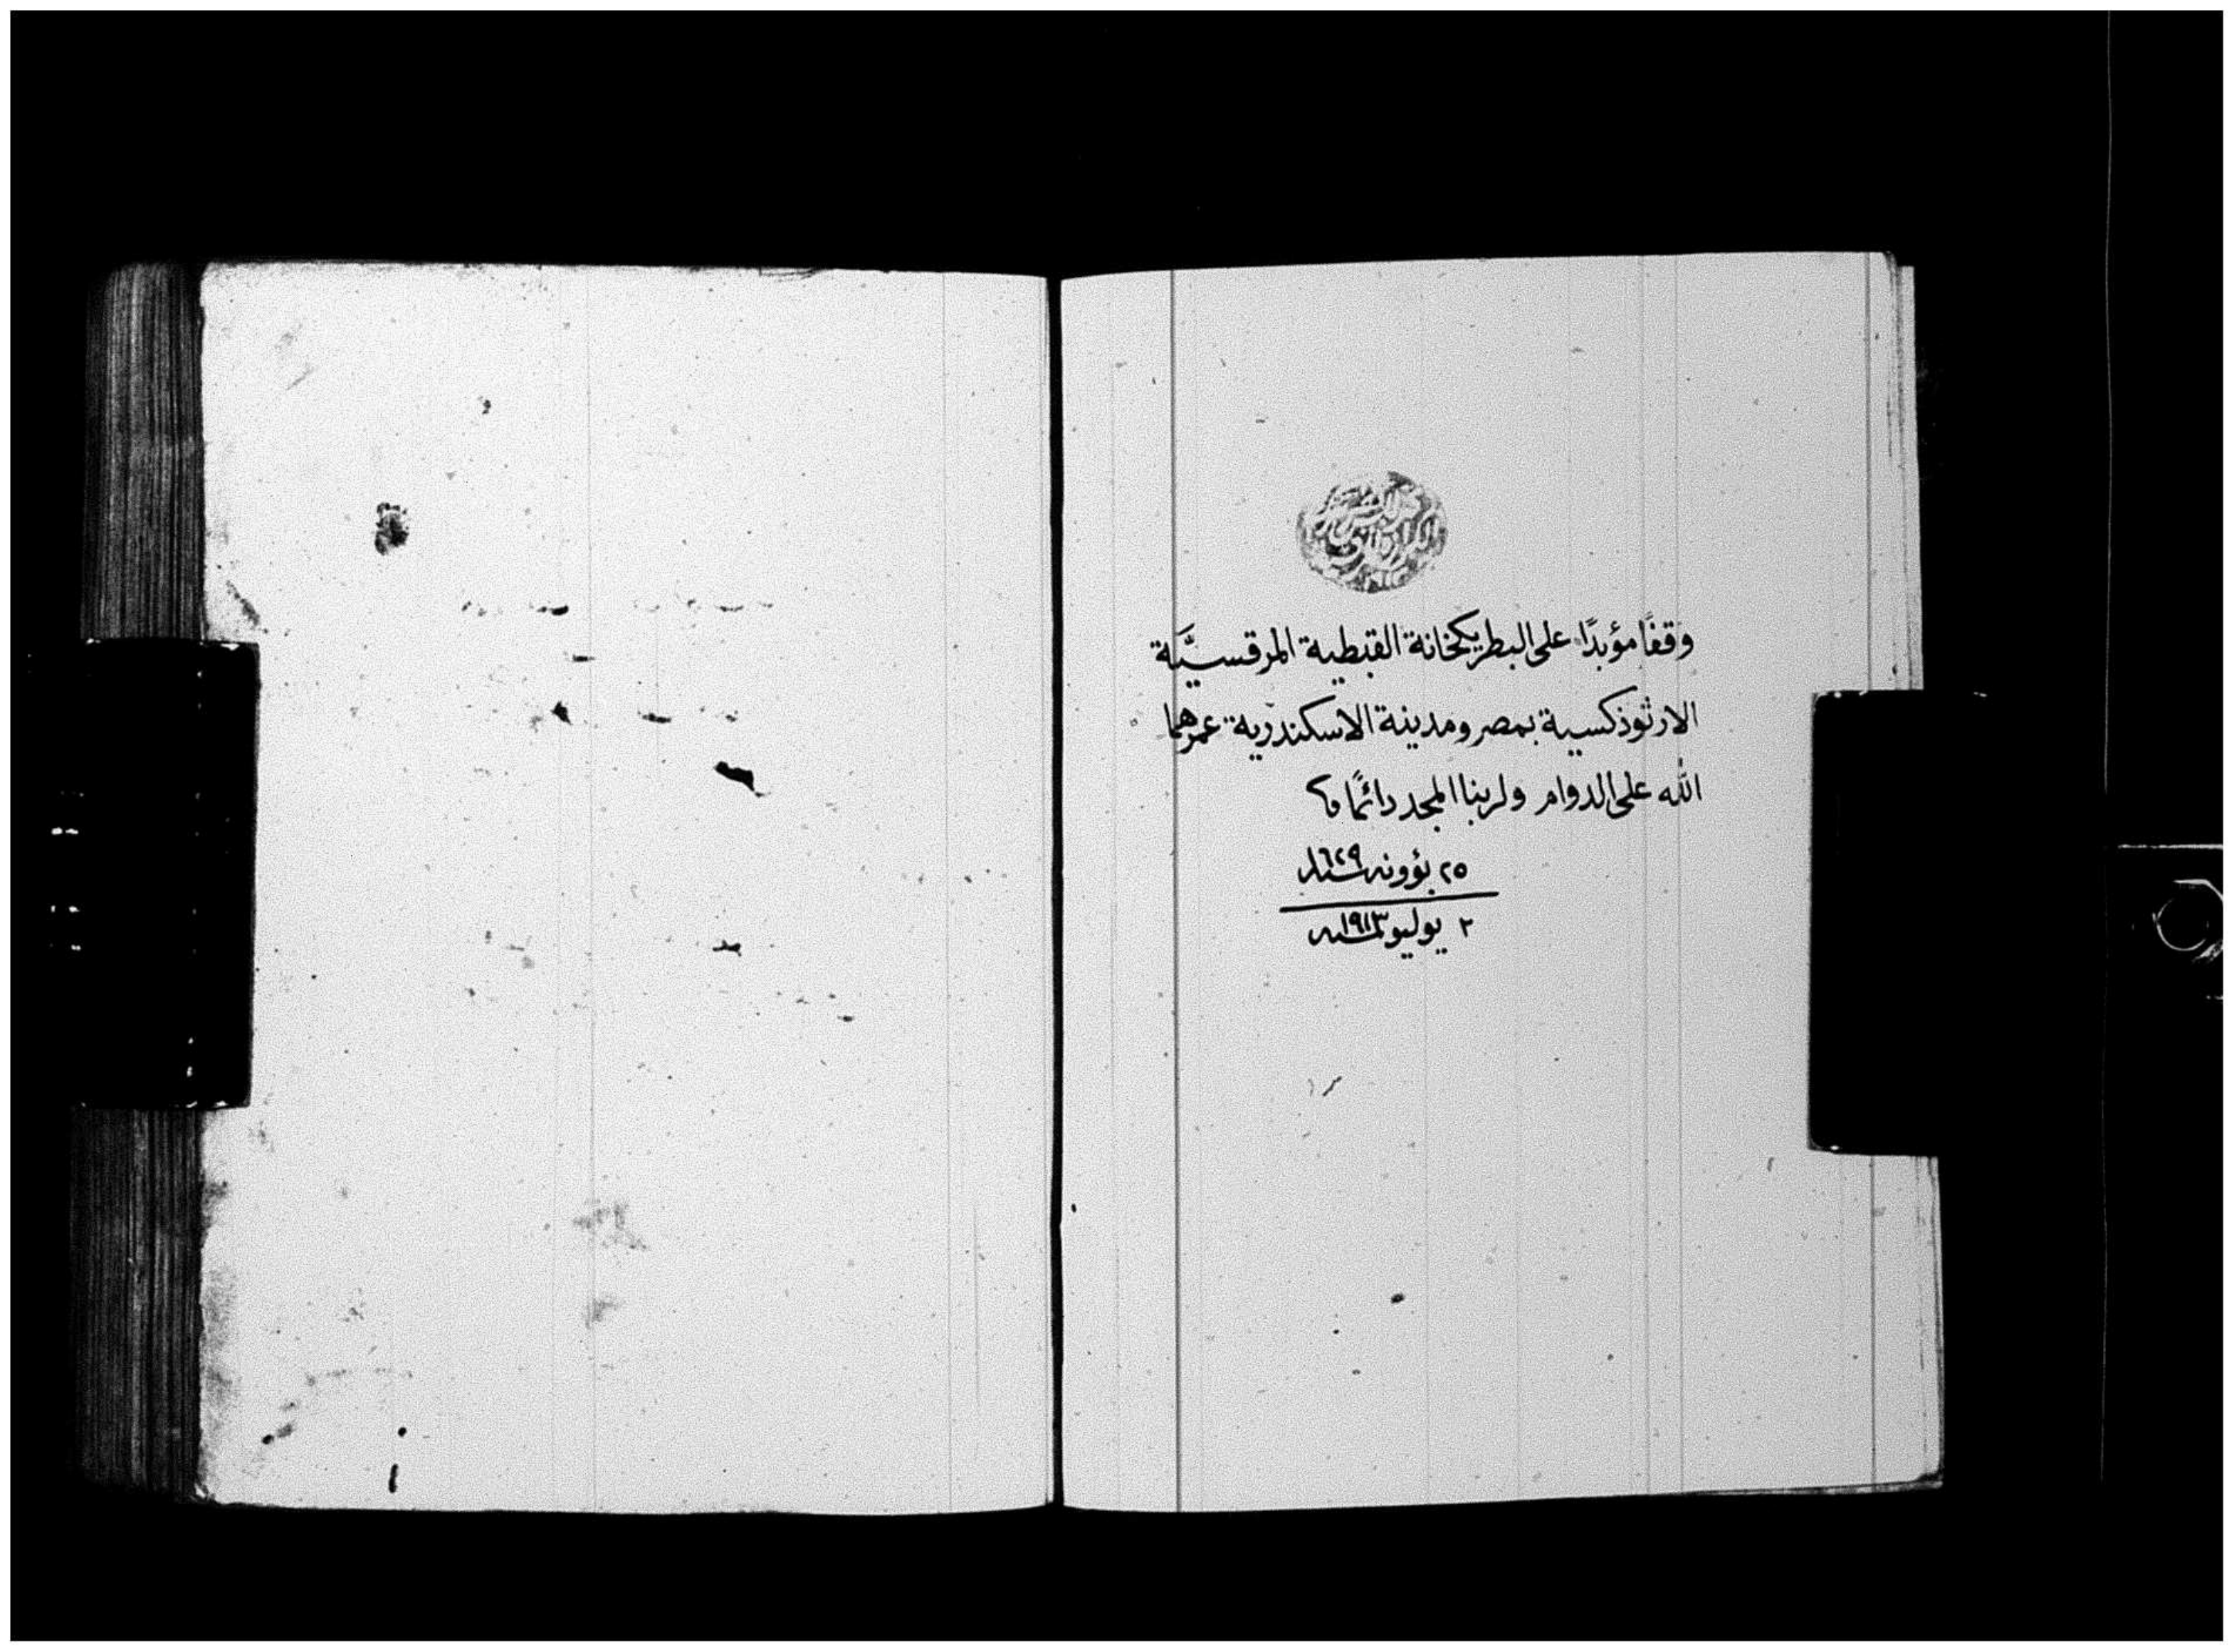 وقفًا مؤبدًا على البطريكخانة القبطية المرقسيَّة
الارثوذكسية بمصر ومدينة الاسكندرية عمرهما
الله على الدوام ولربنا المجد دائمًا
٢٥ بؤونه سنة ١٦٢٩
٢ يوليو سنة ١٩١٣